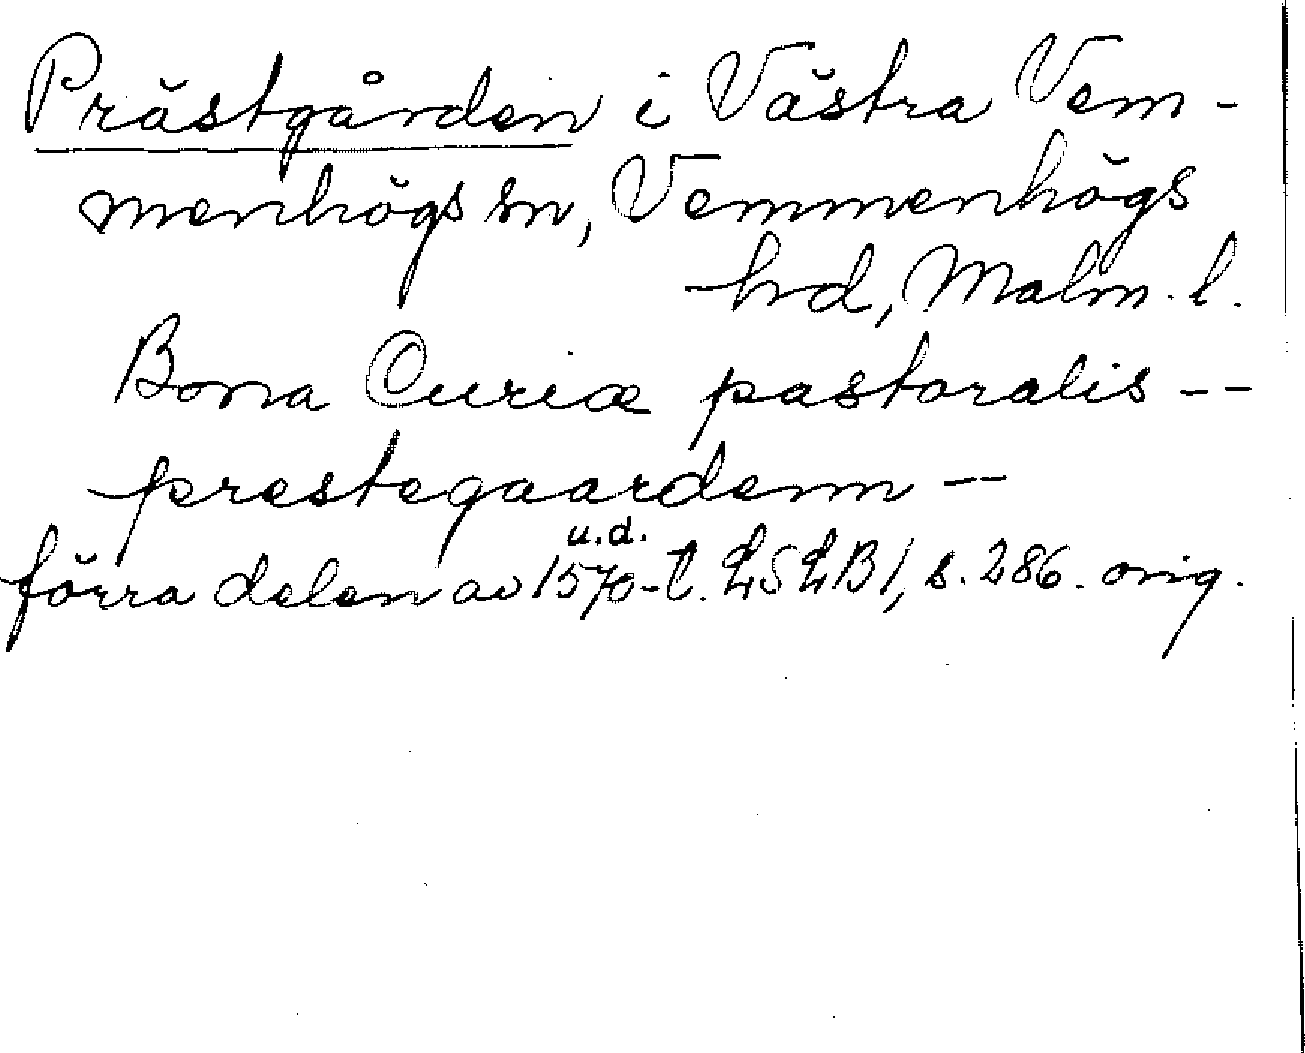 Prästgården i Västra Vem-
menhögs sn, Vemmenhögs
hd, Malm. l.
Bona Curiæ pastoralis --
prestegaardenn --
u.d.
förra delen av 1570-t. LSLB1, s. 286. orig.